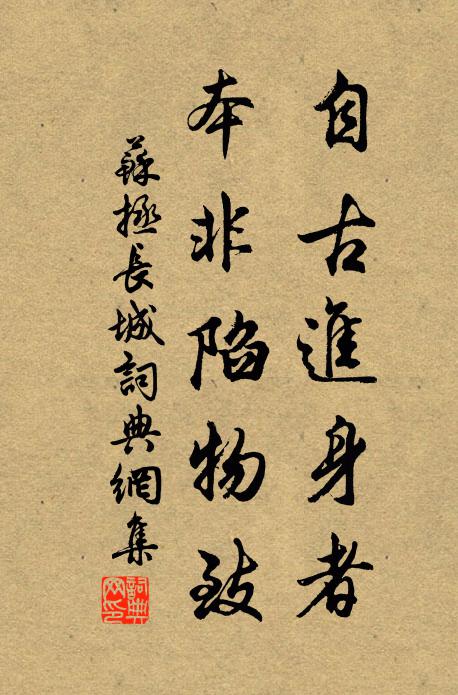 自古進身者
本非陷物致
蘇拯長城詞典網集
詞典网印